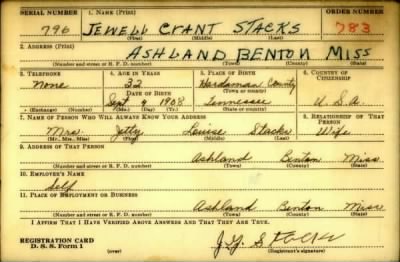 SERIAL NUMBER 1. NAME (Print) ORDER NUMBER
796 JEWELL GRANT STACKS 783
(First) (Middle) (Last)
2. ADDRESS (Print)
ASHLAND BENTON MISS
(Number and street or R. F. D. number) (Town) (County) (State)
3. TELEPHONE 4. AGE IN YEARS 5. PLACE OF BIRTH 6. COUNTRY OF CITIZENSHIP
None 32 Hardaman County
DATE OF BIRTH (Town or county)
Sept 9 1908 Tennessee U.S.A.
(Exchange) (Number) (Mo.) (Day) (Yr.) (State or country)
7. NAME OF PERSON WHO WILL ALWAYS KNOW YOUR ADDRESS 8. RELATIONSHIP OF THAT PERSON
Mrs. Louise Stacks Wife
(Mr., Mrs., Miss) (First) (Middle) (Last)
9. ADDRESS OF THAT PERSON
Ashland Benton Miss
(Number and street or R. F. D. number) (Town) (County) (State)
10. EMPLOYER'S NAME
Self
11. PLACE OF EMPLOYMENT OR BUSINESS
Ashland Benton Miss
(Number and street or R. F. D. number) (Town) (County) (State)
I AFFIRM THAT I HAVE VERIFIED ABOVE ANSWERS AND THAT THEY ARE TRUE.
REGISTRATION CARD
D. S. S. Form 1 (over) (Registrant's signature)